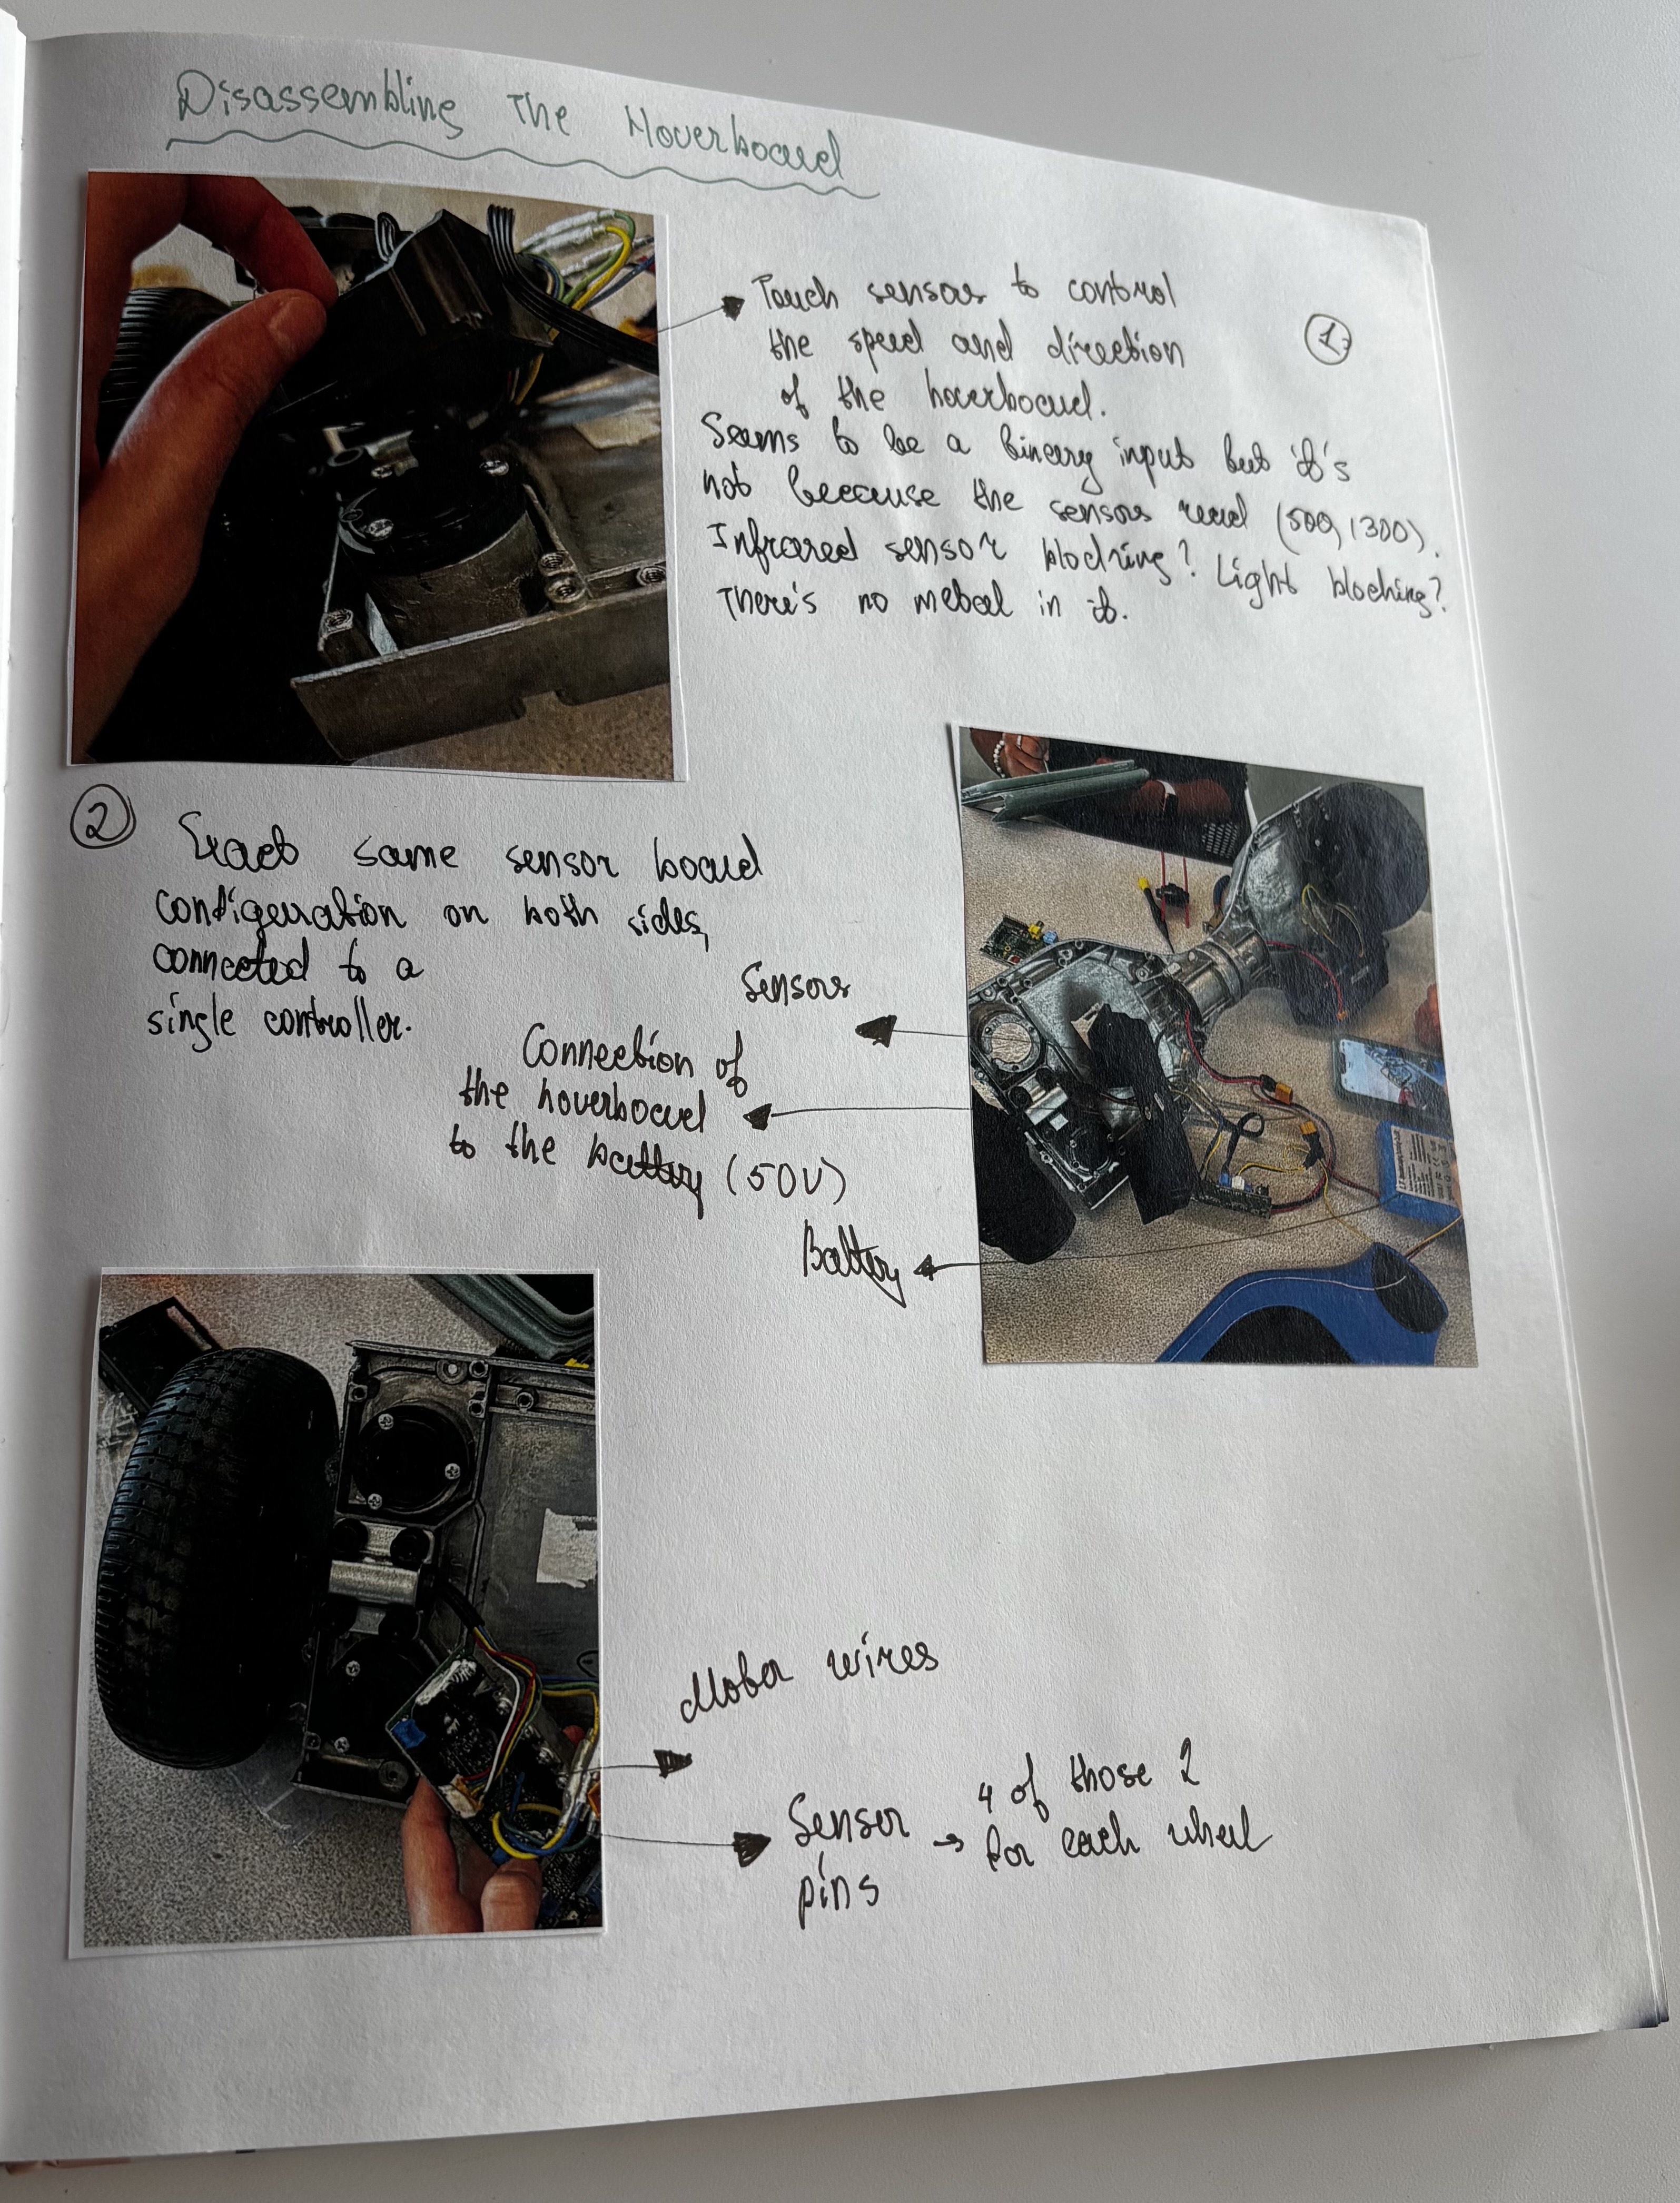 Disassembling The Hoverboard
Touch sensors to control
the speed and direction
of the hoverboard.
1
Seams to be a binary input but it's
not because the sensors read (500, 1300).
Infrared sensor blocking? Light blocking?
There's no metal in it.
2
Exact same sensor board
configuration on both sides,
connected to a
single controller.
Sensors
Connection of
the hoverboard
to the battery (50V)
Battery
Motor wires
Sensor → 4 of those 2
pins for each wheel